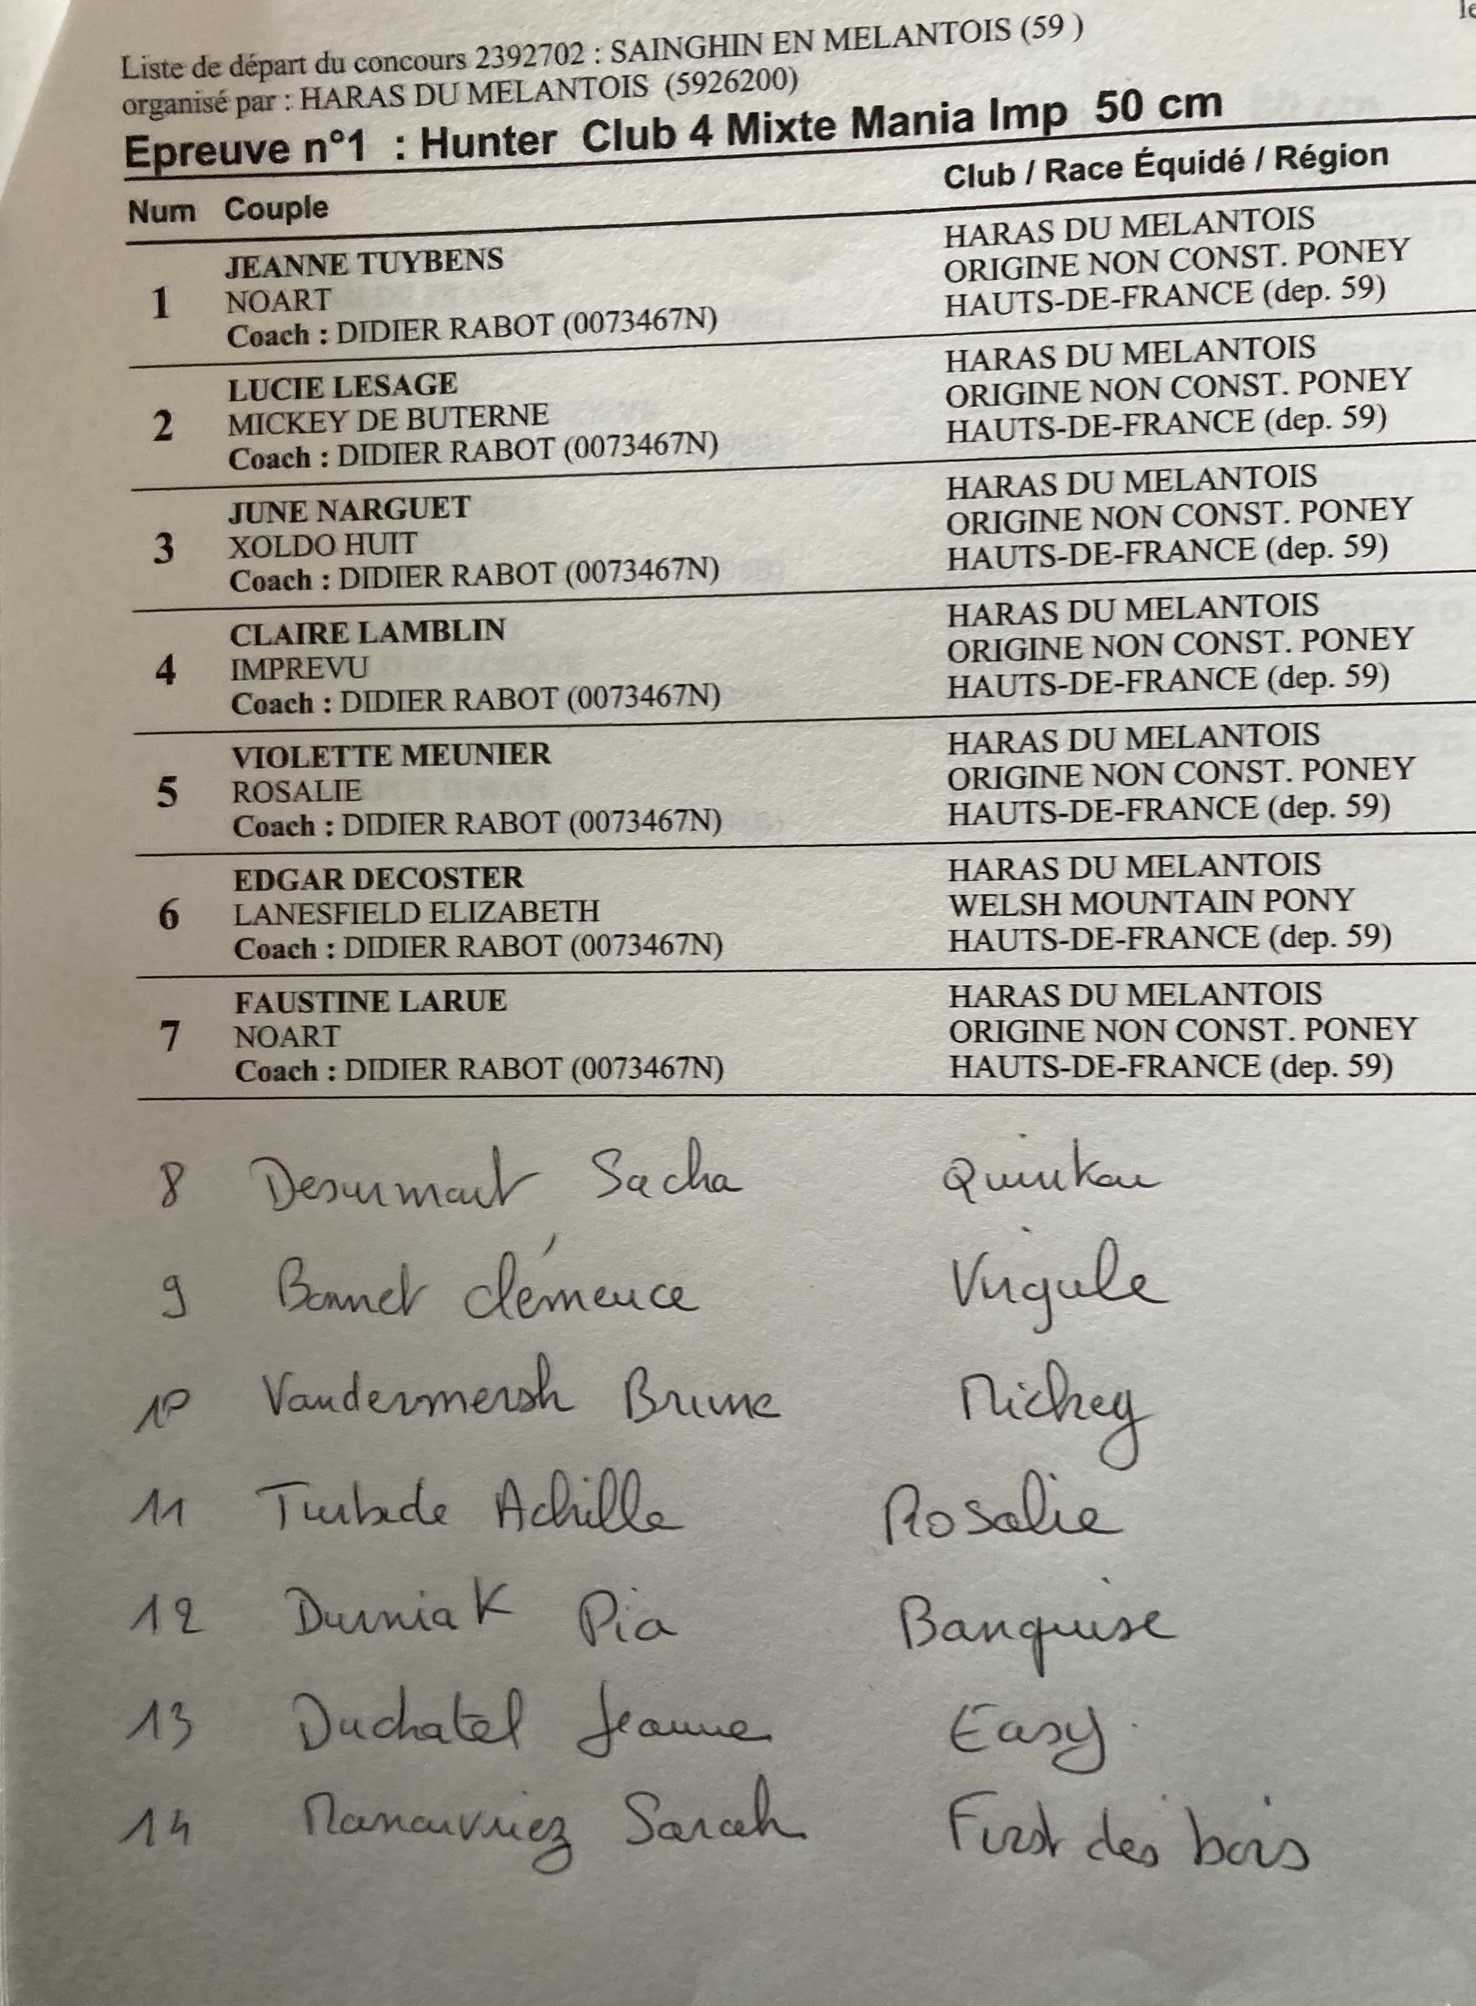 Liste de départ du concours 2392702 : SAINGHIN EN MELANTOIS (59 )
organisé par : HARAS DU MELANTOIS (5926200)
Epreuve n°1 : Hunter Club 4 Mixte Mania Imp 50 cm
Num Couple Club / Race Équidé / Région
JEANNE TUYBENS HARAS DU MELANTOIS
1 NOART ORIGINE NON CONST. PONEY
Coach : DIDIER RABOT (0073467N) HAUTS-DE-FRANCE (dep. 59)
LUCIE LESAGE HARAS DU MELANTOIS
2 MICKEY DE BUTERNE ORIGINE NON CONST. PONEY
Coach : DIDIER RABOT (0073467N) HAUTS-DE-FRANCE (dep. 59)
JUNE NARGUET HARAS DU MELANTOIS
3 XOLDO HUIT ORIGINE NON CONST. PONEY
Coach : DIDIER RABOT (0073467N) HAUTS-DE-FRANCE (dep. 59)
CLAIRE LAMBLIN HARAS DU MELANTOIS
4 IMPREVU ORIGINE NON CONST. PONEY
Coach : DIDIER RABOT (0073467N) HAUTS-DE-FRANCE (dep. 59)
VIOLETTE MEUNIER HARAS DU MELANTOIS
5 ROSALIE ORIGINE NON CONST. PONEY
Coach : DIDIER RABOT (0073467N) HAUTS-DE-FRANCE (dep. 59)
EDGAR DECOSTER HARAS DU MELANTOIS
6 LANESFIELD ELIZABETH WELSH MOUNTAIN PONY
Coach : DIDIER RABOT (0073467N) HAUTS-DE-FRANCE (dep. 59)
FAUSTINE LARUE HARAS DU MELANTOIS
7 NOART ORIGINE NON CONST. PONEY
Coach : DIDIER RABOT (0073467N) HAUTS-DE-FRANCE (dep. 59)
8 Desurmont Sacha
9 Bonnet clémence Virgule
10 Vandermersh Brune Mickey
11 Achille Rosalie
12 Durniak Pia Banquise
13 Duchatel Jeanne Easy
14 Sarah First des bois